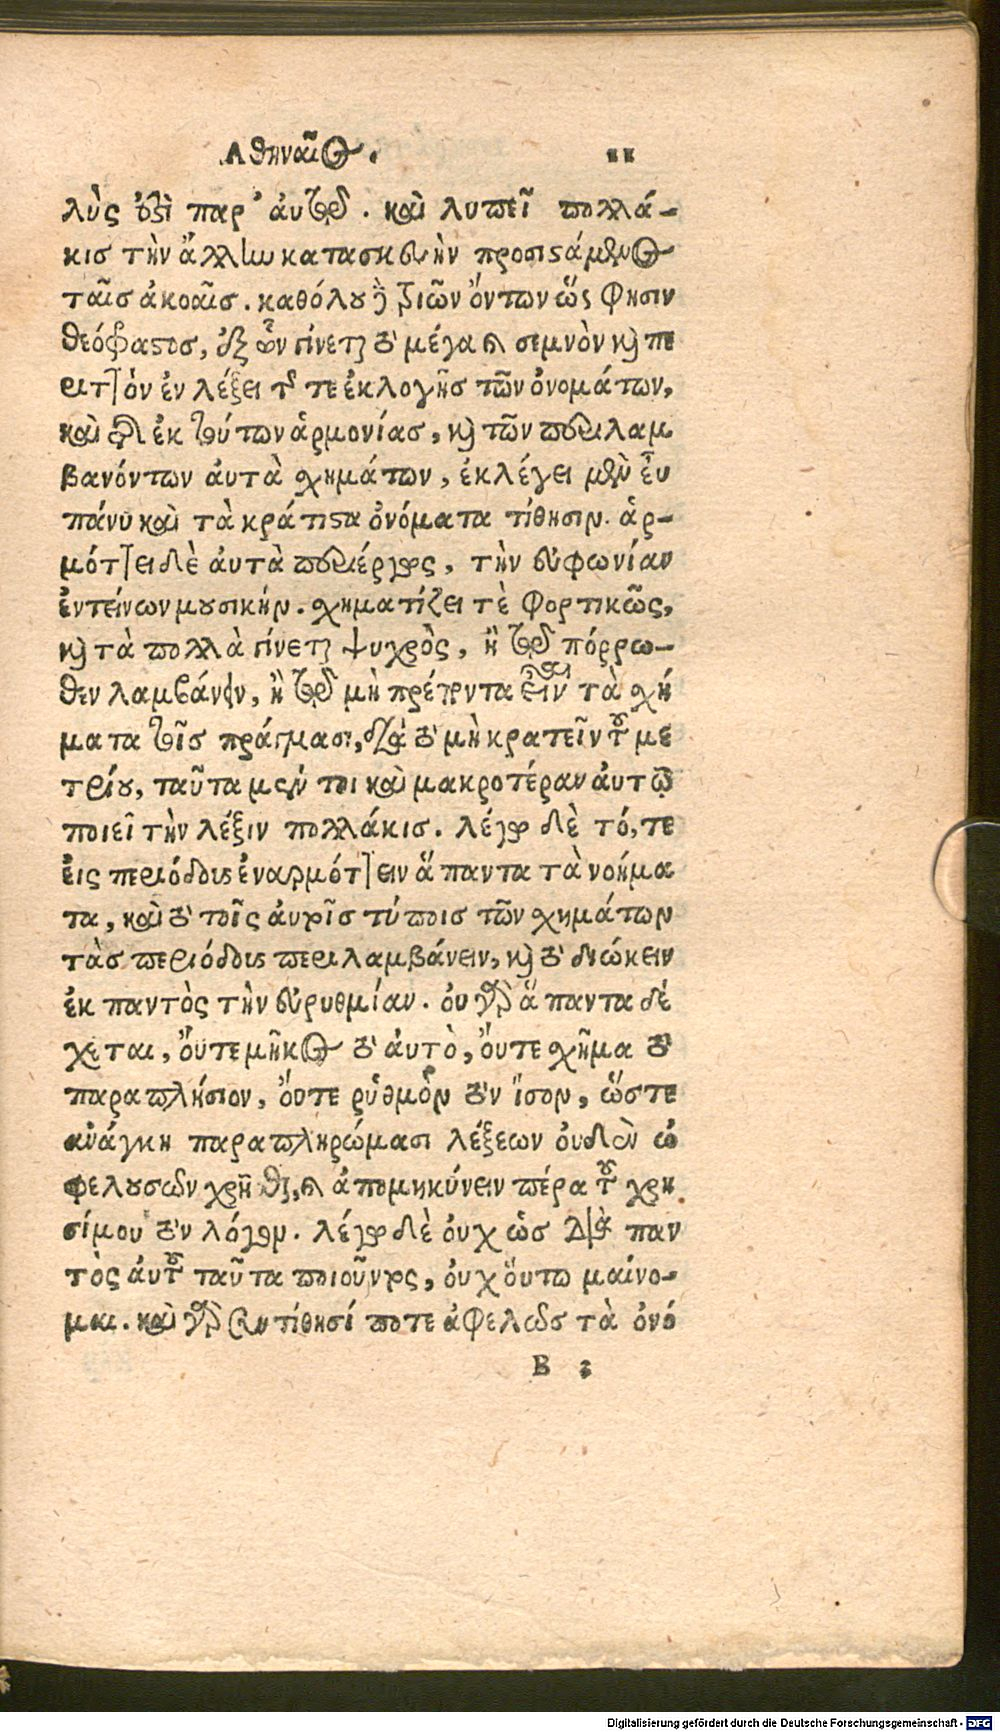 Ἀθηναῖος. 11
λύς ὅτι παρ' αὐτοῦ. καὶ λυπεῖ πολλά-
κις τὴν ἄλλην κατασκευὴν προσιστάμενος
ταῖς ἀκοαῖς. καθόλου δὲ τριῶν ὄντων ὥς φησιν
θεόφραστος, ἐξ ὧν γίνεται τὸ μέγα καὶ σεμνὸν καὶ πε
ριττὸν ἐν λέξει τῆς τε ἐκλογῆς τῶν ὀνομάτων,
καὶ τῆς ἐκ τούτων ἁρμονίας, καὶ τῶν περιλαμ
βανόντων αὐτὰ σχημάτων, ἐκλέγει μὲν εὖ
πάνυ καὶ τὰ κράτιστα ὀνόματα τίθησιν. ἁρ-
μόττει δὲ αὐτὰ περιέργως, τὴν εὐφωνίαν
ἐντείνων μουσικήν. σχηματίζει τὲ φορτικῶς,
καὶ τὰ πολλὰ γίνεται ψυχρὸς, ἢ τοῦ πόρρω-
θεν λαμβάνειν, ἢ τοῦ μὴ πρέποντα εἶναι τὰ σχή
ματα τοῖς πράγμασι, διὰ τὸ μὴ κρατεῖν τοῦ με
τρίου, ταῦτα μέν τοι καὶ μακροτέραν αὐτῷ
ποιεῖ τὴν λέξιν πολλάκις. λέγω δὲ τό, τε
εἰς περιόδους ἐναρμόττειν ἅπαντα τὰ νοήμα
τα, καὶ τὸ τοῖς αὐτοῖς τύποις τῶν σχημάτων
τὰς περιόδους περιλαμβάνειν, καὶ τὸ διώκειν
ἐκ παντὸς τὴν εὐρυθμίαν. οὐ γὰρ ἅπαντα δέ
χεται, οὔτε μῆκος τὸ αὐτὸ, οὔτε σχῆμα τὸ
παραπλήσιον, οὔτε ῥυθμὸν τὸν ἴσον, ὥστε
ἀνάγκη παραπληρώμασι λέξεων οὐδὲν ὠ
φελουσῶν χρῆσθαι, καὶ ἀπομηκύνειν πέρα τοῦ χρη
σίμου τὸν λόγον. λέγω δὲ οὐχ ὡς διὰ παν
τὸς αὐτοῦ ταῦτα ποιοῦντος, οὐχ οὕτω μαίνο-
μαι. καὶ γὰρ συντίθησί ποτε ἀφελῶς τὰ ὀνό
B 3
Digitalisierung gefördert durch die Deutsche Forschungsgemeinschaft - DFG